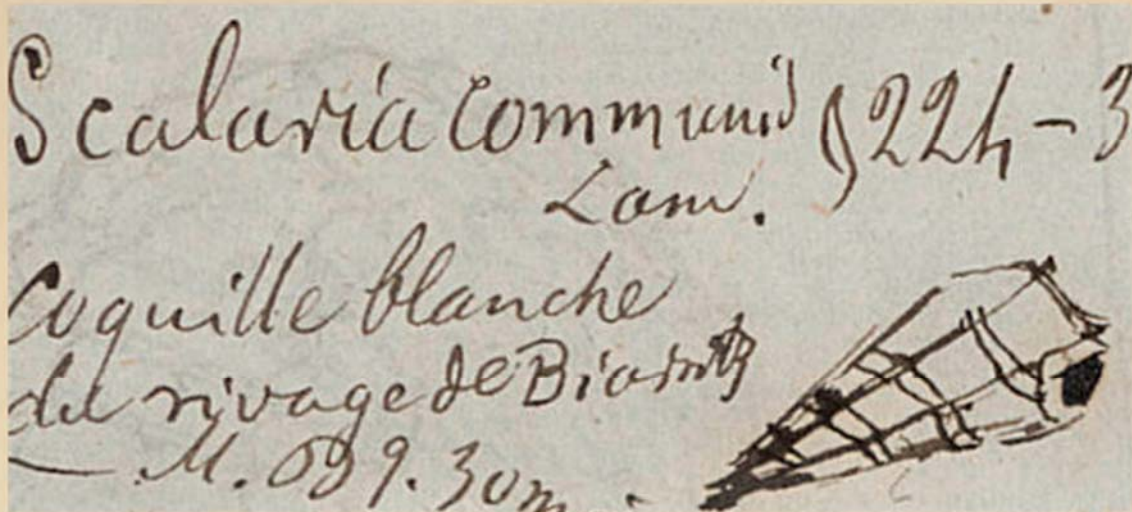 Scalaria communis § 224-3
Lam.
Coquille blanche
du rivage de Biarritz
M. 30m.